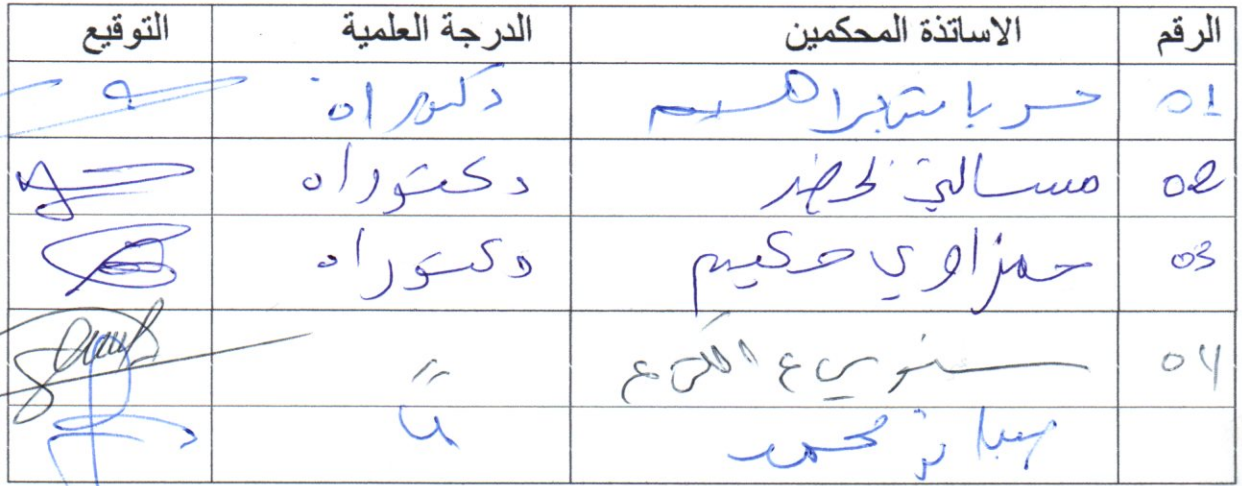 الرقم الاساتذة المحكمين الدرجة العلمية التوقيع
01 حرباش براهيم دكتوراه
02 مسالتي لخضر دكتوراه
03 حمزاوي حكيم دكتوراه
04 سنوسي ع الكريم //
محمد //